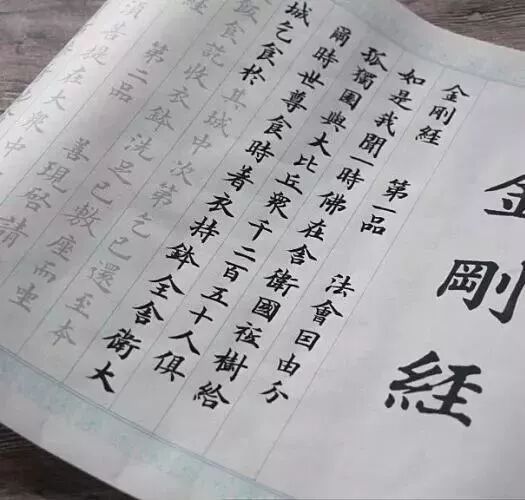 金剛経
金剛經 第一品 法會囙由分
如是我聞一時佛在舍衛國祇樹給
孤獨園與大比丘衆千二百五十人俱
爾時世尊食時着衣持鉢全舍衛大
城乞食於其城中次第乞已還至本
飯食訖收衣鉢洗足已敷座而坐
經 第二品 善現啓請
須菩提在大衆中